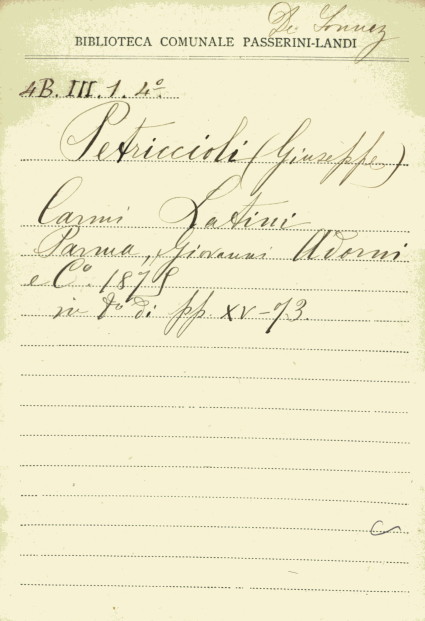 De
BIBLIOTECA COMUNALE PASSERINI-LANDI
4B. III. 1. 4º
Petriccioli (Giuseppe)
Carmi Latini
Parma, Giovanni Adorni
e Cº. 1875
in 8º di pp. XV-73.